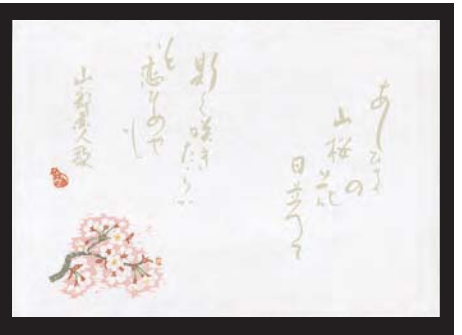 あしひきの
山桜花
日並べて
斯く咲きたらば
いと恋めや
も
山部赤人歌